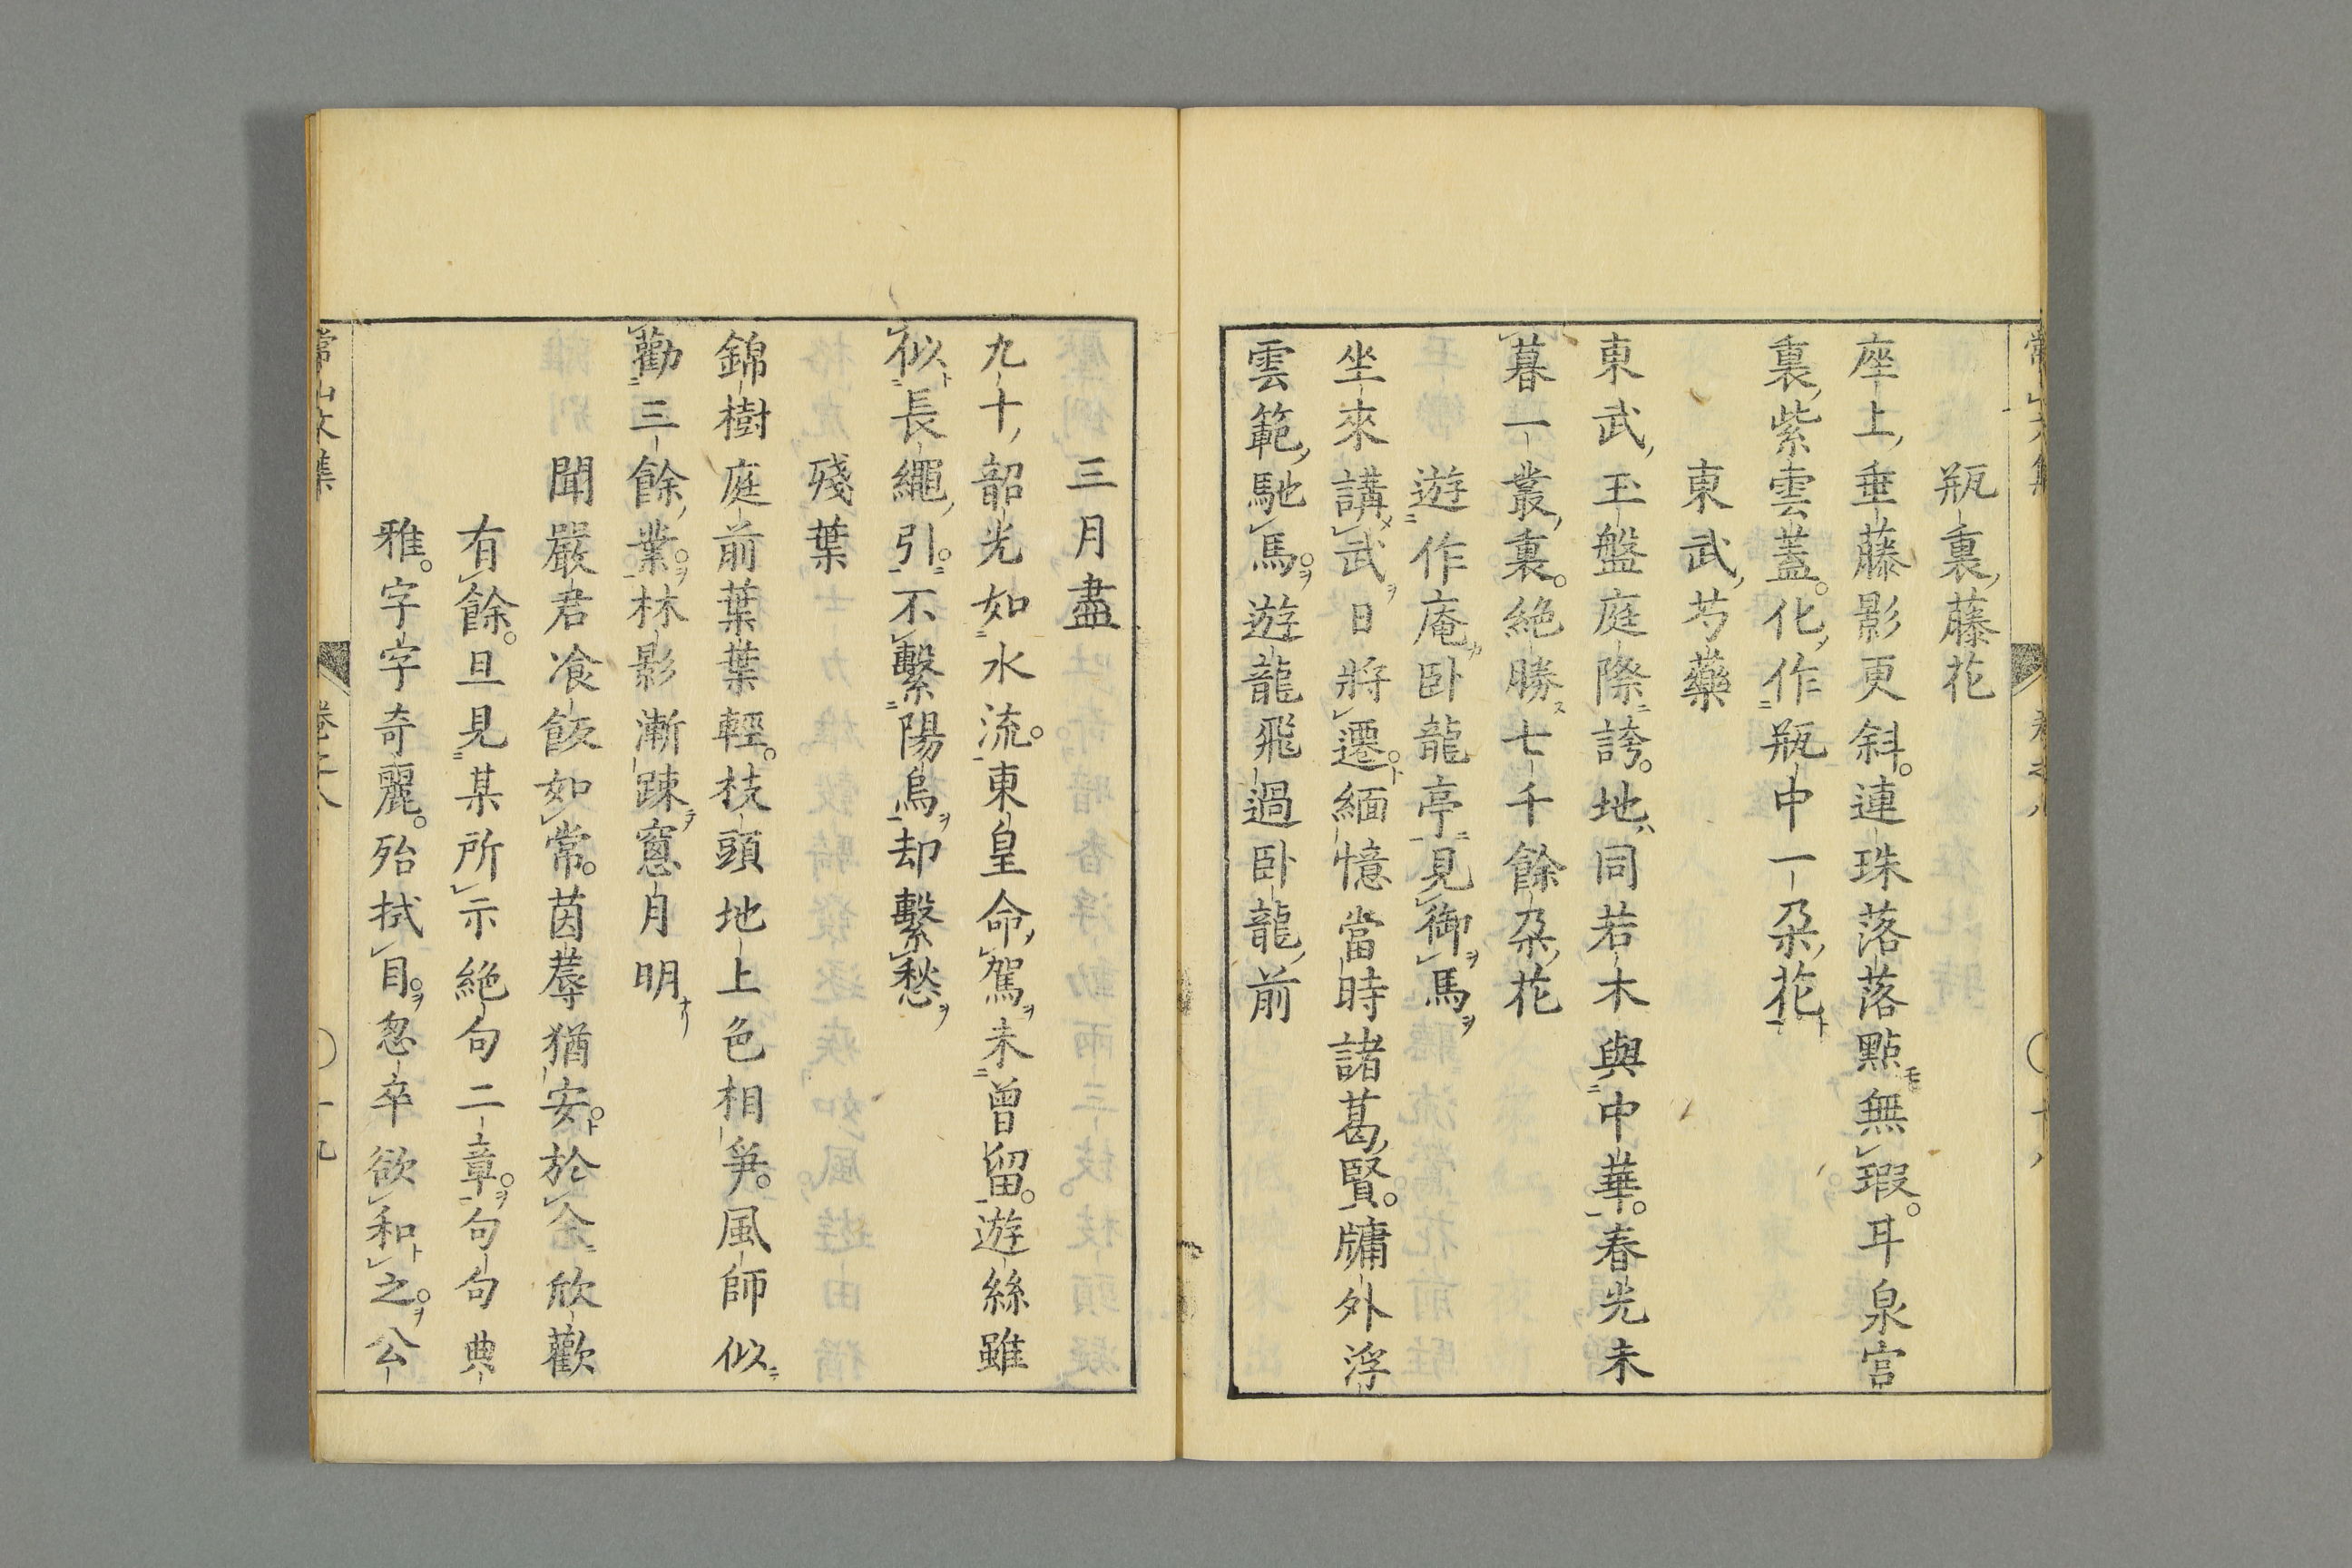 瓶裏藤花
座上垂藤影更斜。連珠落落點無瑕。耳泉宮
裏紫雲蓋。化作瓶中一朶花
東武芍藥
東武玉盤庭際誇。地同若木與中華。春光未
暮一叢裏。絶勝七千餘朶花
遊作庵臥龍亭見御馬
坐來講武日將遷。緬憶當時諸葛賢。牗外浮
雲範馳馬。遊龍飛過臥龍前
三月盡
九十韶光如水流。東皇命駕未曾留。遊絲雖
似長繩引。不繫陽烏却繫愁
殘葉
錦樹庭前葉葉輕。枝頭地上色相爭。風師似
勸三餘業。林影漸踈窓月明
聞嚴君飡飯如常。茵蓐猶安。於余欣歡
有餘。且見某所示絶句二章。句句典
雅。字字奇麗。殆拭目。怱卒欲和之。公
常山文集 卷之八 十九